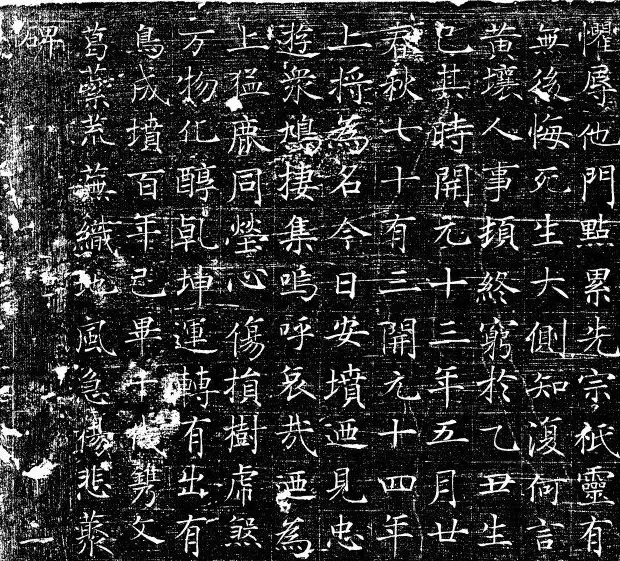 懼辱他門點累先宗祇靈有
無後悔死生大側知復何言
黃壤人事損終窮於乙丑生
已其時開元十三年五月廿
春秋七十有三開元十四年
上將為名今日安墳迺見忠
遊眾鳩捿集嗚呼哀哉迺為
上猛鹿同塋心傷損樹虎煞
万物化醇乹坤運轉有出有
鳥成墳百年已畢千後鐫文
葛虆荒蕪織地風急楊悲蒸
碑 一 二